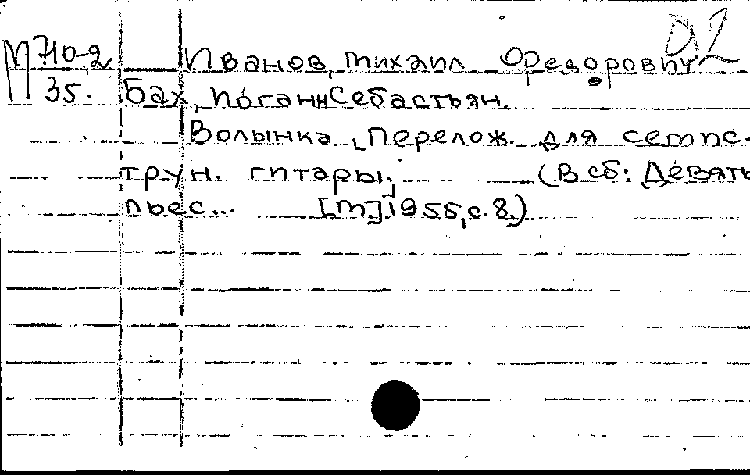 D2
М 710-2 Иванов, Михаил Федорович
35. Бах, Иоганн Себастьян.
Волынка [перелож. для семис-
трун. гитары.] (В сб: Девять
пьес... [М.] 1955, с. 8.)